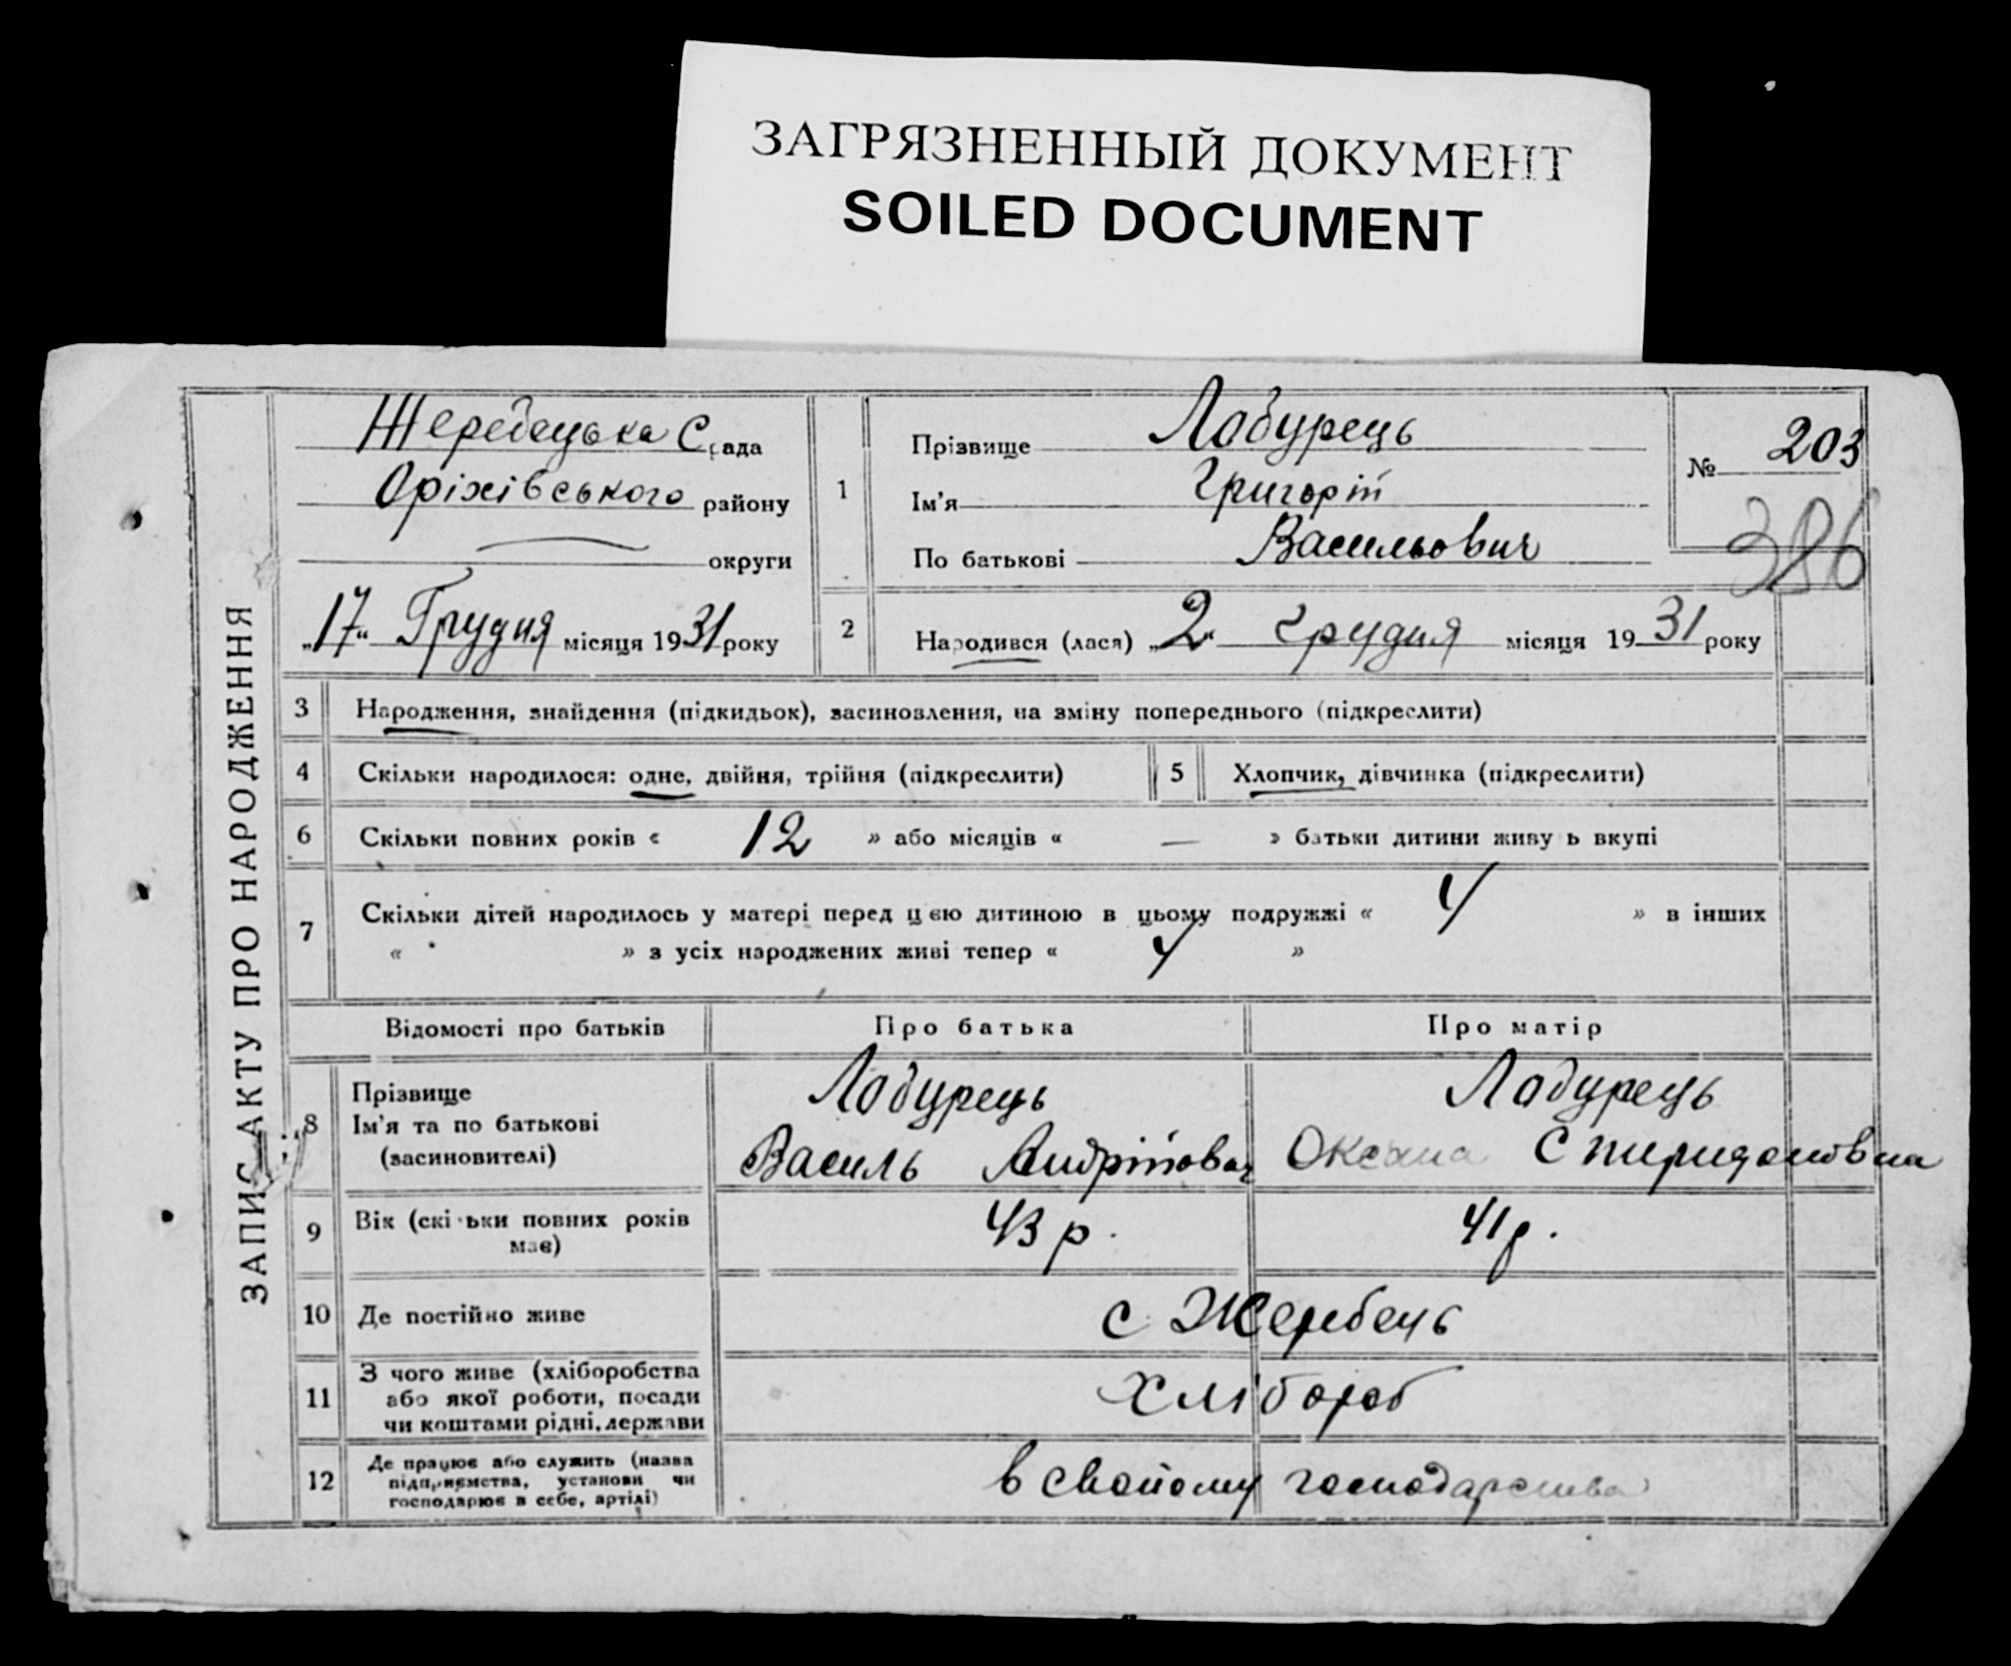 ЗАГРЯЗНЕННЫЙ ДОКУМЕНТ
SOILED DOCUMENT
ЗАПИС АКТУ ПРО НАРОДЖЕННЯ
Жеребецька С рада
Оріхівського району
округи
„17“ Грудня місяця 1931 року
1
Прізвище Лабурець
Ім'я Григорій
По батькові Васильович
№ 203
386
2 Народився (лася) „2“ грудня місяця 1931 року
3 Народження, знайдення (підкидьок), засиновлення, на зміну попереднього (підкреслити)
4 Скільки народилося: одне, двійня, трійня (підкреслити)
5 Хлопчик, дівчинка (підкреслити)
6 Скільки повних років « 12 » або місяців « — » батьки дитини живу ь вкупі
7 Скільки дітей народилось у матері перед цією дитиною в цьому подружжі « 4 » в інших
« » з усіх народжених живі тепер « 4 »
Відомості про батьків Про батька Про матір
8 Прізвище
Ім'я та по батькові
(засиновителі)
Лабурець
Василь Андрійович
Лабурець
Оксана Спиридоновна
9 Вік (скільки повних років
має)
43 р. 41 р.
10 Де постійно живе с. Жеребець
11 З чого живе (хліборобства
або якої роботи, посади
чи коштами рідні, держави
Хлібороб
12 Де працює або служить (назва
підприємства, установи чи
господарює в себе, артілі)
в свойому господарстве